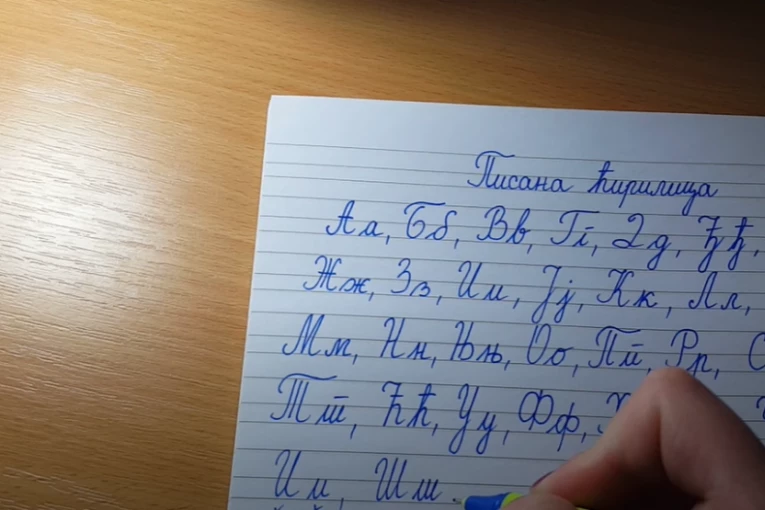 Писана ћирилица
Аа, Бб, Вв, Гг, Дд, Ђђ,
Жж, Зз, Ии, Јј, Кк, Лл,
Мм, Нн, Њњ, Оо, Пп, Рр, С
Тт, Ћћ, Уу, Фф, Х
Џџ, Шш.